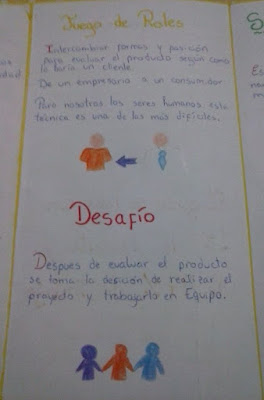 Juego de Roles
Intercambiar formas y posición
para evaluar el producto según como
lo haría un cliente.
De un empresario a un consumidor
Para nosotros los seres humanos esta
técnica es una de las más dificiles.
Desafío
Despues de evaluar el producto
se toma la desición de realizar el
proyecto y trabajarlo en Equipo.
S
Es
m
os
dad